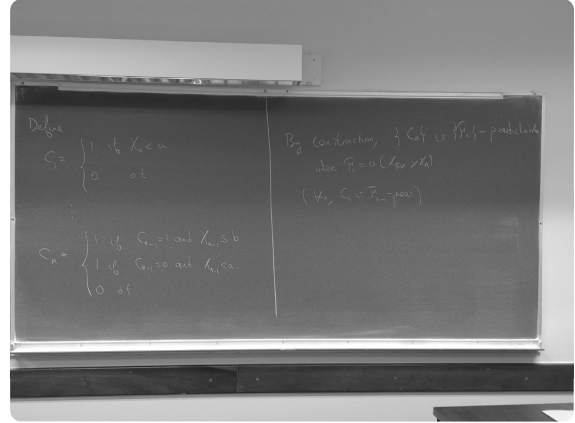 Define
C₁ = { 1 if X₀ < a
0 o.t.
⋮
Cₙ = { 1 if Cₙ₋₁ = 1 and Xₙ₋₁ ≤ b
1 if Cₙ₋₁ = 0 and Xₙ₋₁ < a
0 o.t.
By construction, {Cₙ} is {Fₙ}-predictable
where Fₙ = σ(X₀, …, Xₙ)
(∀n, Cₙ is Fₙ₋₁-meas)